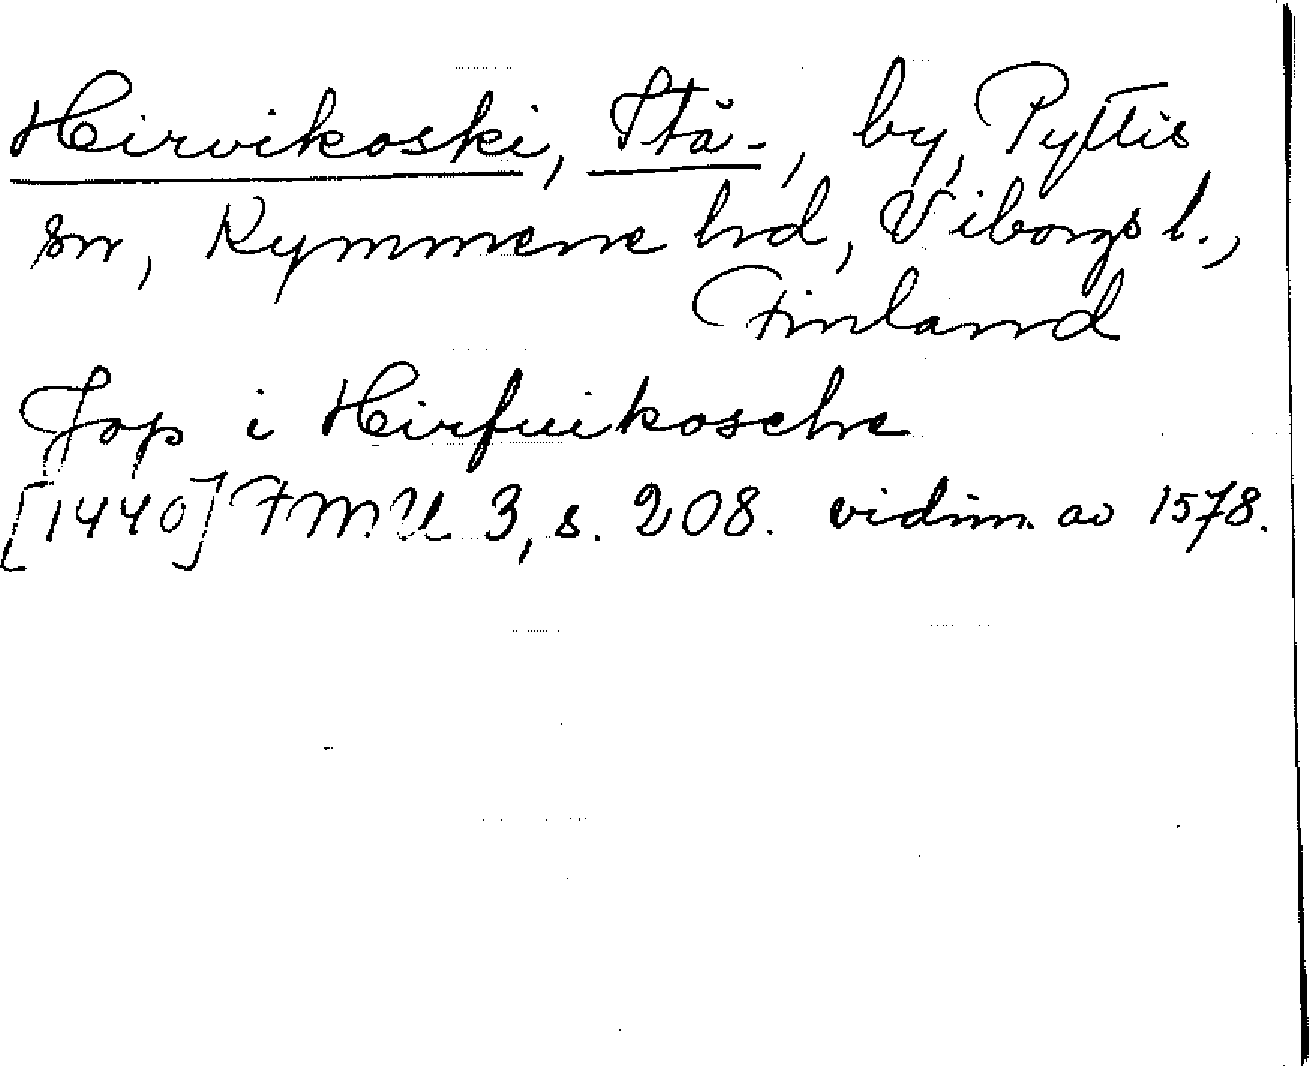 Hirvikoski, Itä-, by, Pyttis
sn, Kymmene hd, Viborgs l.,
Finland
Jop i Hirfuikosche
[1440] FMU 3, s. 208. vidim. av 1578.